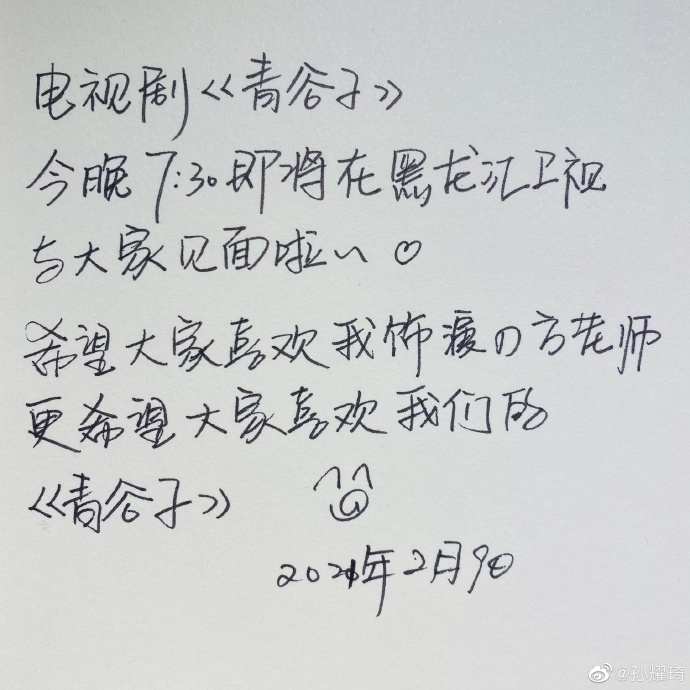 电视剧《青谷子》
今晚7:30即将在黑龙江卫视
与大家见面啦~ ♡
希望大家喜欢我饰演の方老师
更希望大家喜欢我们的
《青谷子》
2021年2月9日
@孙耀琦